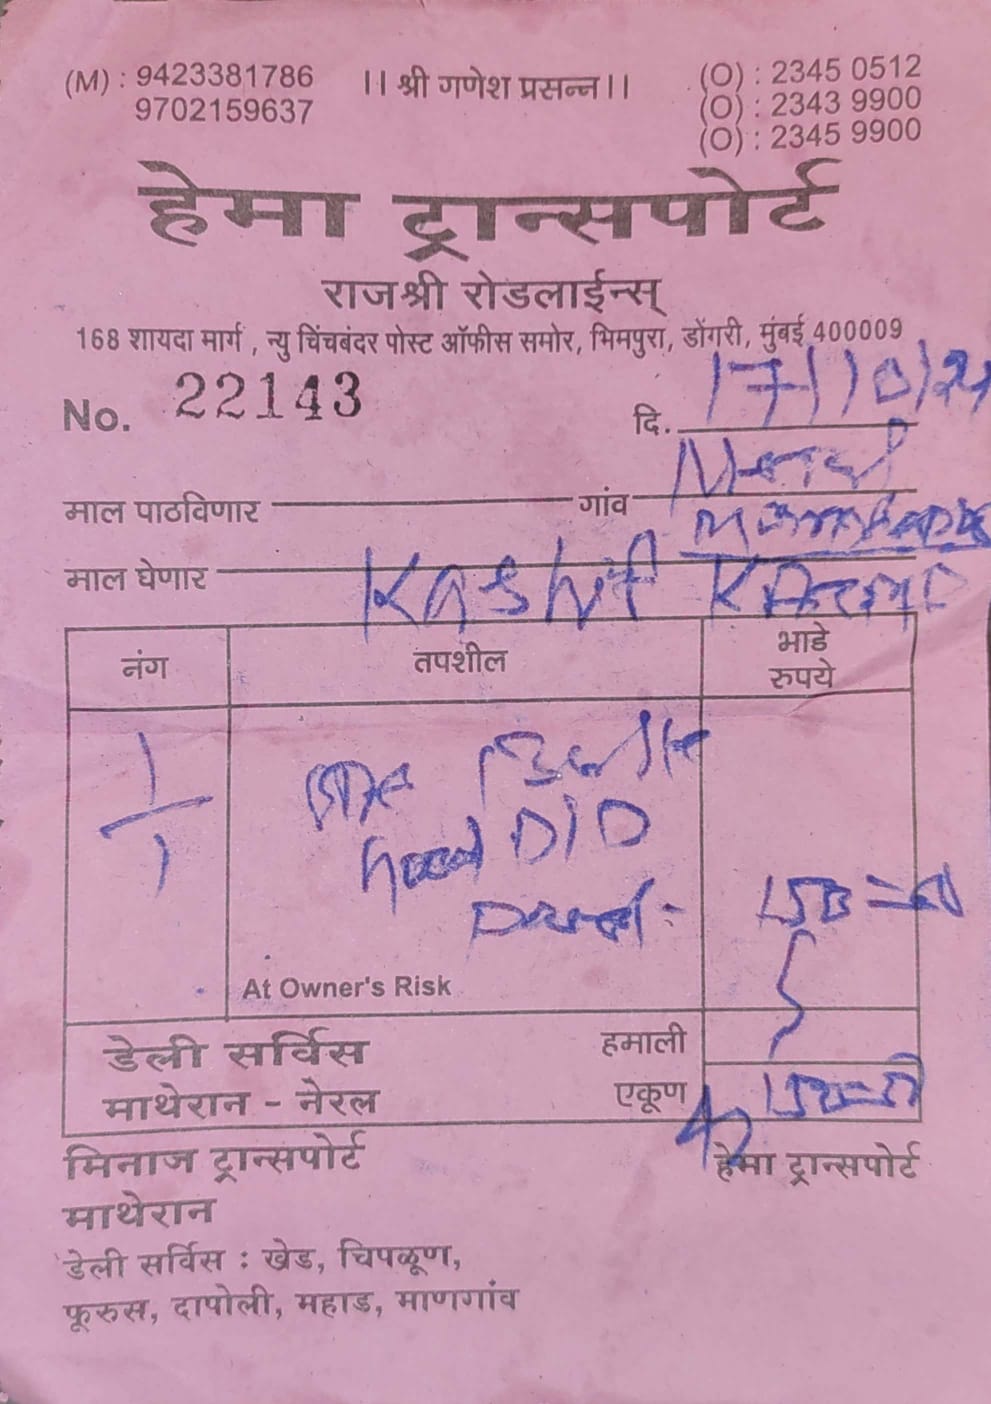 (M) : 9423381786
9702159637
।। श्री गणेश प्रसन्न।।
(O) : 2345 0512
(O) : 2343 9900
(O) : 2345 9900
हेमा ट्रान्सपोर्ट
राजश्री रोडलाईन्स्
168 शायदा मार्ग , न्यु चिंचबंदर पोस्ट ऑफीस समोर, भिमपुरा, डोंगरी, मुंबई 400009
No. 22143
दि. 17/10/24
माल पाठविणार गांव
माल घेणार Kashif
नंग तपशील भाडे रुपये
1/1
D/D
At Owner's Risk
डेली सर्विस हमाली
माथेरान - नेरल एकूण
मिनाज ट्रान्सपोर्ट हेमा ट्रान्सपोर्ट
माथेरान
डेली सर्विस : खेड, चिपळूण,
फूरुस, दापोली, महाड, माणगांव